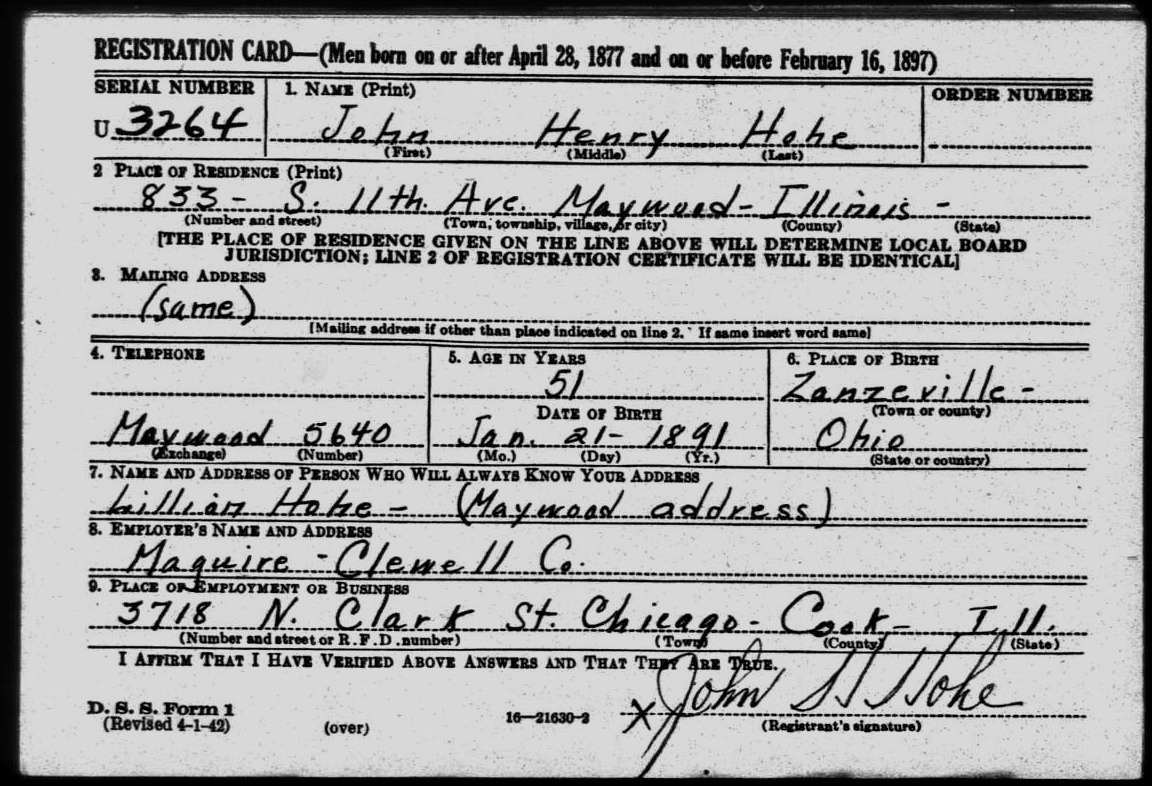 REGISTRATION CARD—(Men born on or after April 28, 1877 and on or before February 16, 1897)
SERIAL NUMBER 1. NAME (Print) ORDER NUMBER
U 3264 John Henry Hohe
(First) (Middle) (Last)
2 PLACE OF RESIDENCE (Print)
833 - S. 11th. Ave. Maywood - Illinois -
(Number and street) (Town, township, village, or city) (County) (State)
[THE PLACE OF RESIDENCE GIVEN ON THE LINE ABOVE WILL DETERMINE LOCAL BOARD
JURISDICTION; LINE 2 OF REGISTRATION CERTIFICATE WILL BE IDENTICAL]
3. MAILING ADDRESS
(same)
[Mailing address if other than place indicated on line 2. If same insert word same]
4. TELEPHONE 5. AGE IN YEARS 6. PLACE OF BIRTH
51 Zanzeville -
DATE OF BIRTH (Town or county)
Maywood 5640 Jan. 21 - 1891 Ohio
(Exchange) (Number) (Mo.) (Day) (Yr.) (State or country)
7. NAME AND ADDRESS OF PERSON WHO WILL ALWAYS KNOW YOUR ADDRESS
Lillian Hohe - (Maywood address)
8. EMPLOYER'S NAME AND ADDRESS
Maguire - Clewell Co.
9. PLACE OF EMPLOYMENT OR BUSINESS
3718 N. Clark St. Chicago - Cook - Ill.
(Number and street or R. F. D. number) (Town) (County) (State)
I AFFIRM THAT I HAVE VERIFIED ABOVE ANSWERS AND THAT THEY ARE TRUE.
D. S. S. Form 1
(Revised 4-1-42) (over) 16—21630-2 X John H Hohe
(Registrant's signature)